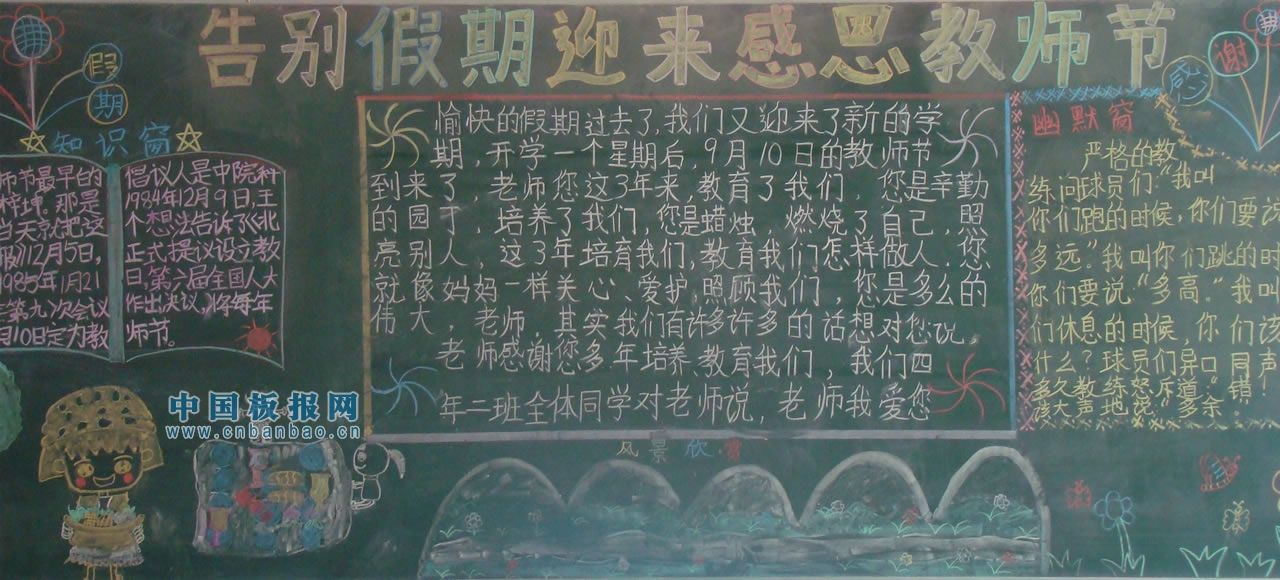 告别假期迎来感恩教师节
假
期
感
谢
知识窗
师节最早的
梓坤。那是
当天就把这
报》12月5日,
1985年1月21
第九次会议
月10日定为教
倡议人是中院科
1984年12月9日,王
个想法告诉了《北
正式提议设立教
日,第六届全国人大
作出决议,将每年
师节。
愉快的假期过去了,我们又迎来了新的学
期,开学一个星期后,9月10日的教师节
到来了,老师您这3年来,教育了我们,您是辛勤
的园丁,培养了我们,您是蜡烛,燃烧了自己,照
亮别人,这3年培育我们,教育我们怎样做人,您
就像妈妈一样关心、爱护,照顾我们,您是多么的
伟大,老师,其实我们有许多许多的话想对您说。
老师感谢您多年培养、教育我们,我们四
年二班全体同学对老师说,老师我爱您
幽默窗
严格的教
练问球员们:“我叫
你们跑的时候,你们要说
多远。”我叫你们跳的时
你们要说“多高。”我叫
们休息的时候,你们该
什么?球员们异口同声
多久教练怒斥道:“错
该大声地说:多余。
风景欣赏
中国板报网
www.cnbanbao.cn